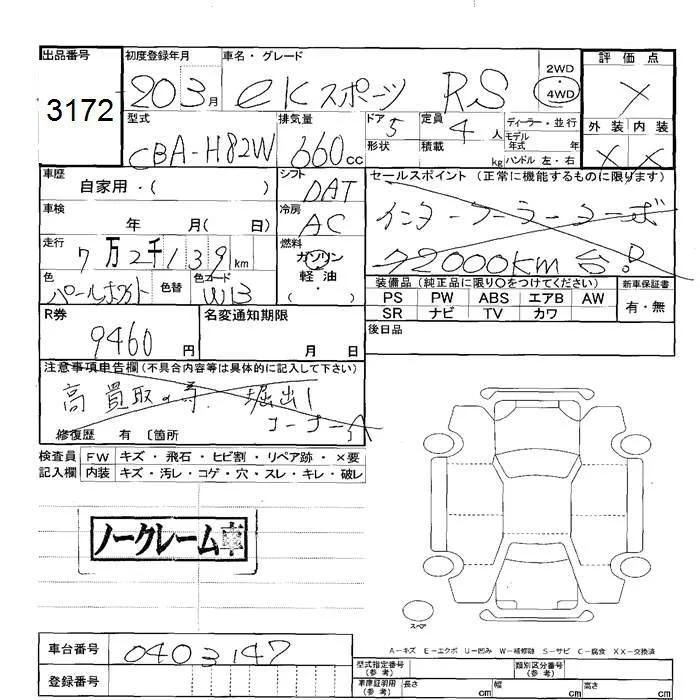 出品番号
3172
初度登録年月
20 3 月
車名・グレード
eKスポーツ RS
2WD
4WD
評価点
×
外装 内装
× ×
型式
CBA-H82W
排気量
660 cc
ドア 5
形状
定員 4 人
積載 kg
ディーラー・並行
モデル年式 年
ハンドル 左・右
車歴
自家用・( )
シフト
DAT
セールスポイント (正常に機能するものに限ります)
インタークーラーターボ
72000km台!
車検
年 月( 日)
冷房
AC
走行
7万2千139 km
燃料
ガソリン
・
軽油
( )
色
パールホワイト
色替
色コード
W13
装備品 (純正品に限り〇をつけてください)
PS PW ABS エアB AW
SR ナビ TV カワ
新車保証書
有・無
R券
9460 円
名変通知期限
月 日
後日品
注意事項申告欄 (不具合内容等は具体的に記入して下さい)
高買取の為 堀出し
コーナー
修復歴 有 〔箇所
検査員
記入欄
FW キズ・飛石・ヒビ割・リペア跡・×要
内装 キズ・汚レ・コゲ・穴・スレ・キレ・破レ
ノークレーム車
スペア
A-キズ E-エクボ U-凹み W-補修跡 S-サビ C-腐食 XX-交換済
車台番号
0403147
登録番号
型式指定番号
(参考)
類別区分番号
(参考)
車庫証明用
(参考)
長さ cm
幅 cm
高さ cm